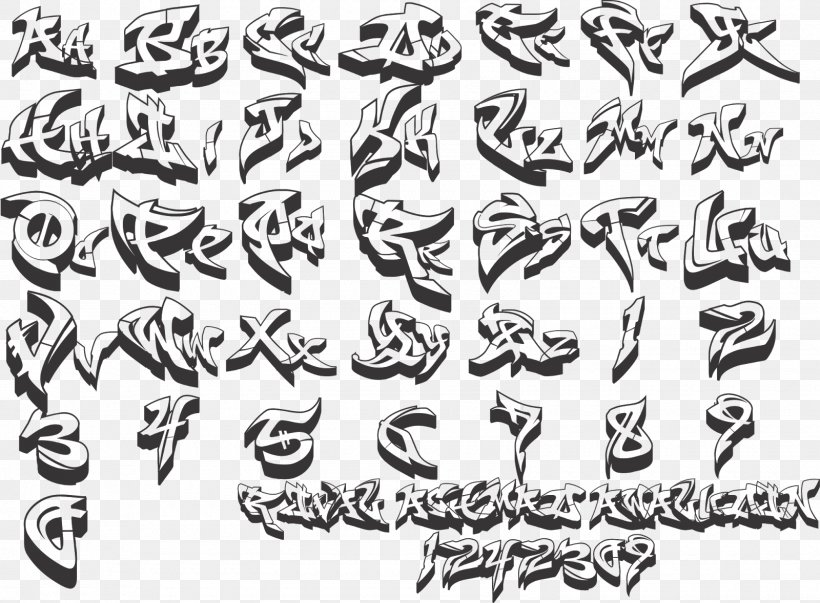 Aa Bb Cc Dd Ee Ff G
Hh Ii Jj Kk Ll Mm Nn
Oo Pp Qq Rr Ss Tt Uu
Vv Ww Xx Yy Zz 1 2
3 4 5 6 7 8 9
0 RIVAL ACHMAD AWALUDIN
1242309